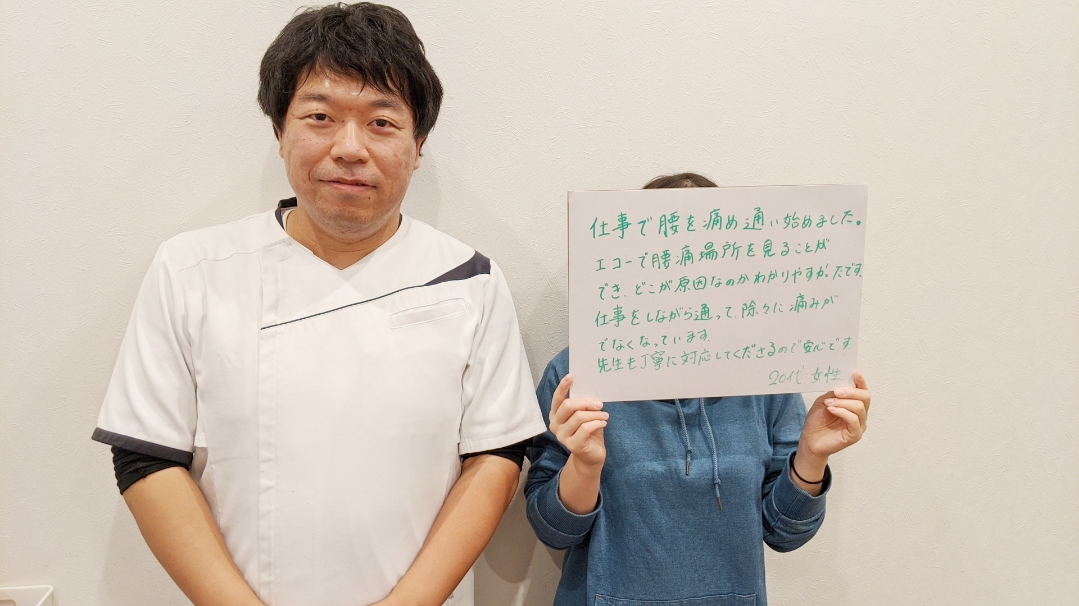 仕事で腰を痛め通い始めました。
エコーで腰痛場所を見ることが
でき、どこが原因なのかわかりやすかったです。
仕事をしながら通って、除々に痛みが
でなくなっています。
先生も丁寧に対応してくださるので安心です
20代 女性